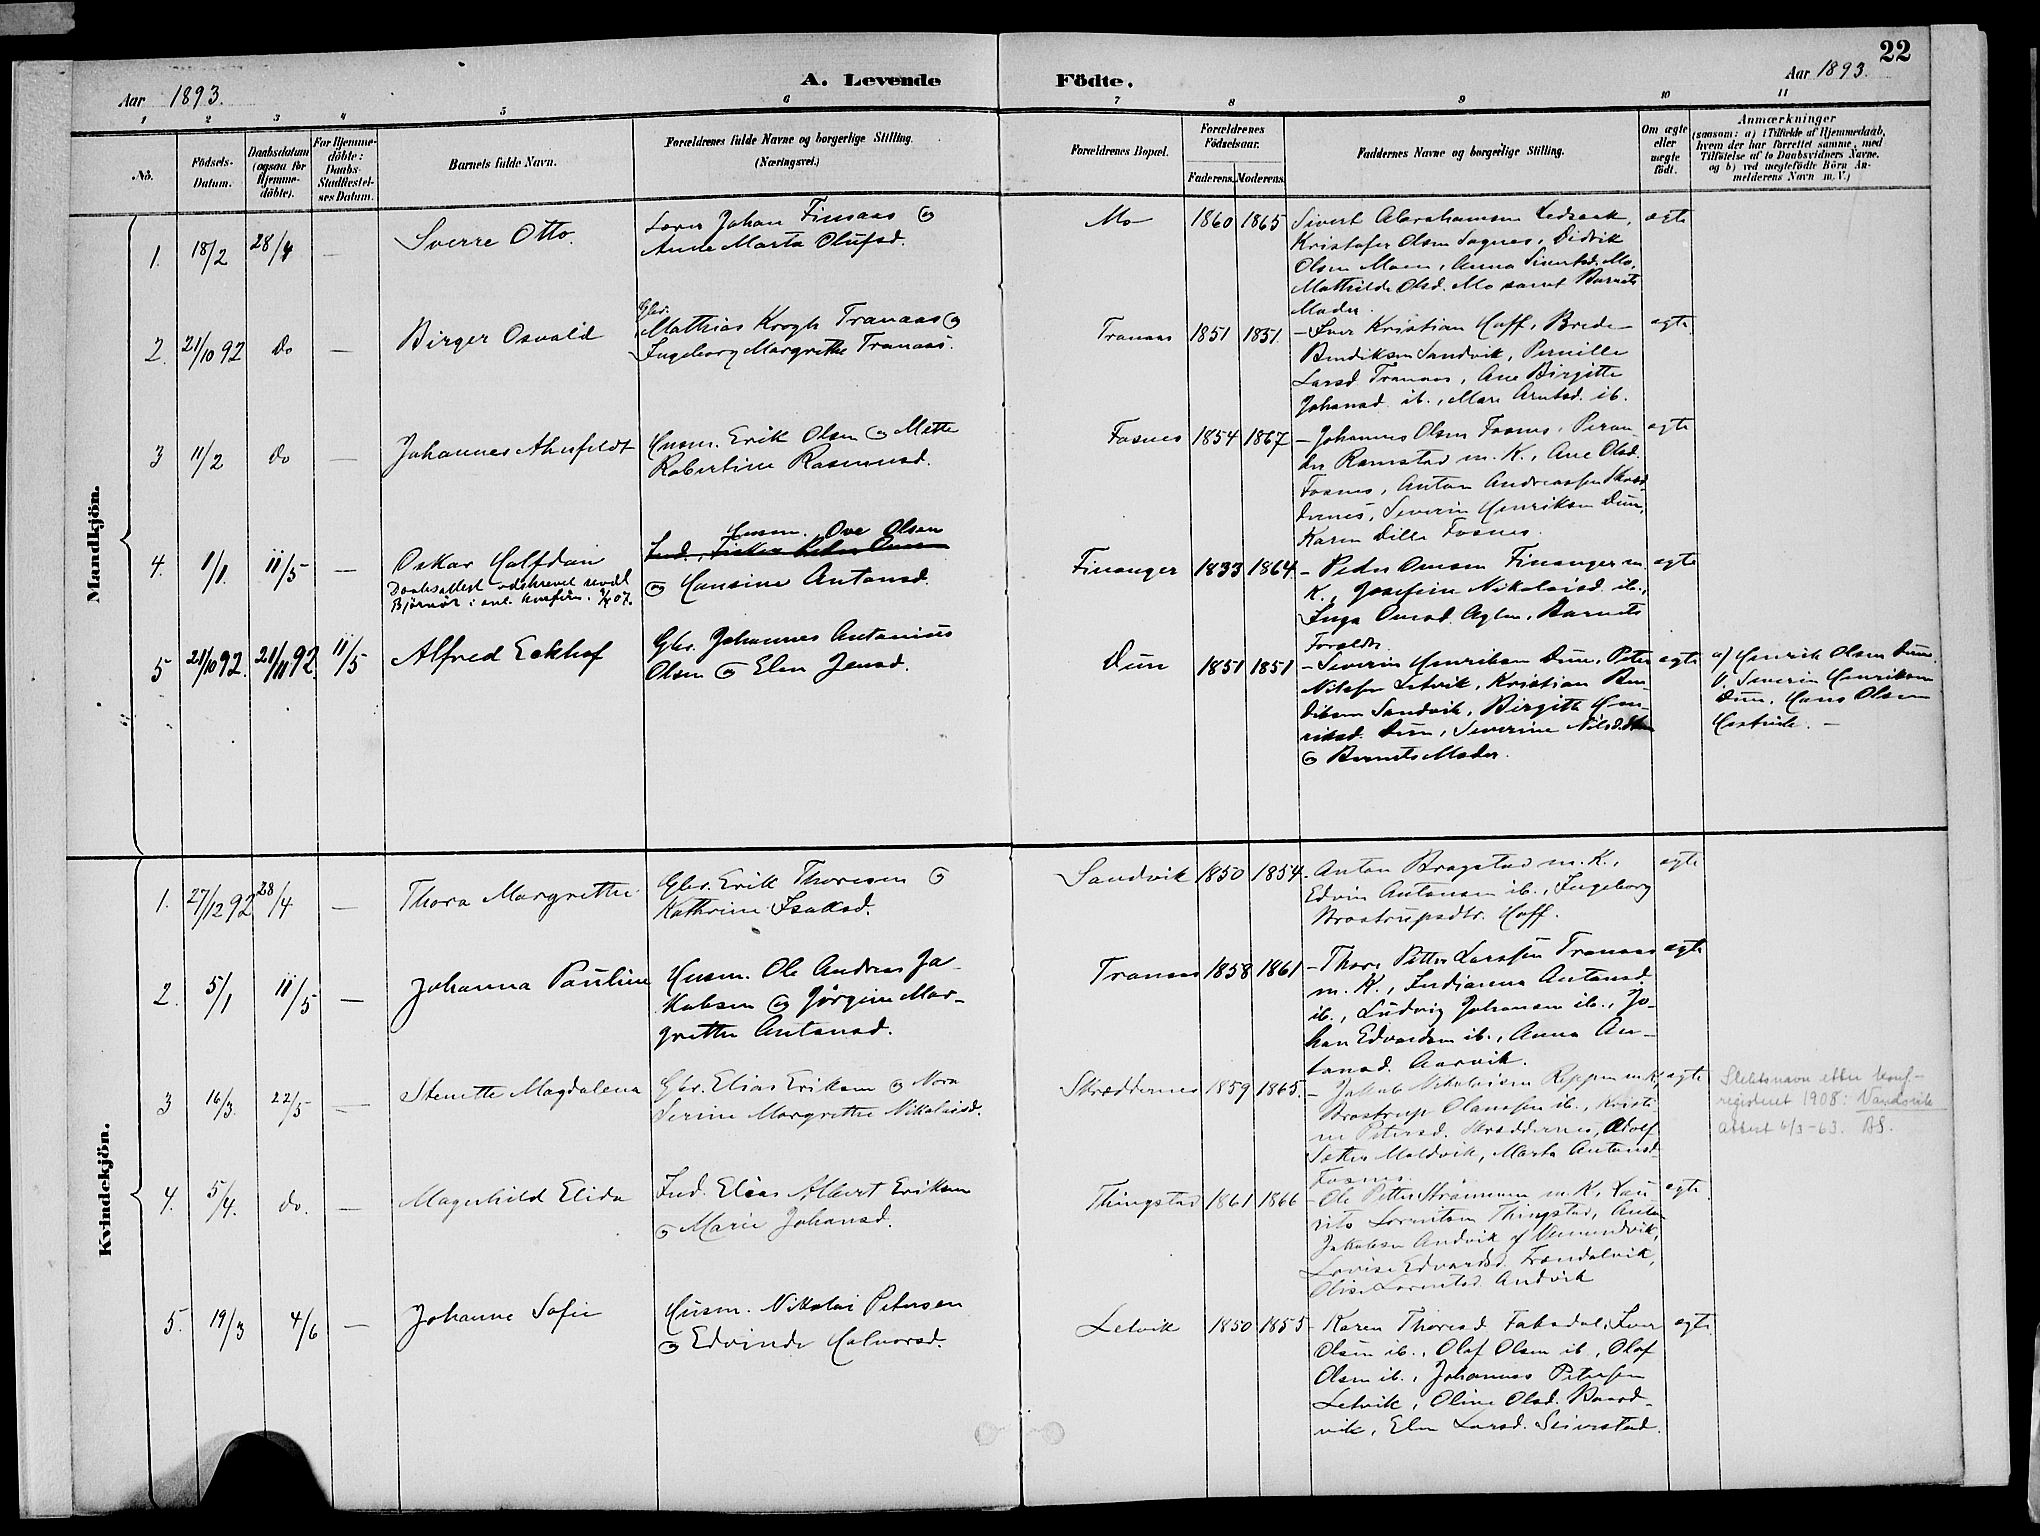 22
A. Levende Födte.
Aar 1893.
Aar 1893.
1 2 3 4 5 6 7 8 9 10 11
No.
Födsels-Datum.
Daabsdatum (ogsaa for Hjemme-döbte).
For Hjemme-döbte: Daabs-Stadfæstel-ses Datum.
Barnets fulde Navn.
Forældrenes fulde Navne og borgerlige Stilling.
(Næringsvei.)
Forældrenes Bopæl.
Forældrenes Födselsaar.
Faderens. Moderens.
Faddernes Navne og borgerlige Stilling.
Om ægte eller uægte födt.
Anmærkninger
(saasom: a) i Tilfælde af Hjemmedaab, hvem der har forrettet samme, med Tilföielse af to Daabsvidners Navne, og b) ved uægtefödte Börn An-melderens Navn m. V.)
Mandkjön.
1. 18/2 28/4 — Sverre Otto.
Johan Finsaas og
Anne Marta Olufsd.
Mo 1860 1865
Sivert Abrahamsen
Kristofer Olsen Sagnes, Didrik
Olsen Moen, Anna Sivertsd. Mo,
Mathilde Olsd. Mo samt Barnets
Moder.
ægte
2. 21/10 92 do —
Birger Osvald
Gbr.
Mathias Krogh Tranaas og
Ingeborg Margrethe Tranaas.
Tranaas 1851 1851.
— Iver Kristian Hoff, Brede
Bendiksen Sandvik, Pernille
Larsd. Tranaas, Ane Birgitte
Johansd. ib., Mare Arntsd. ib.
ægte
3 11/2 do — Johannes Ahnfeldt
Husm. Erik Olsen og Mette
Robertine Rasmusd.
Fosnes 1854 1867
— Johannes Olsen Fosnes,
Ramstad m. K., Ane Olsd.
Fosnes, Anton Andreassen Skræd-
dernes, Severin Henriksen Dun,
Karen Dille Fosnes.
ægte
4. 1/1. 11/5 —
Oskar Halfdan
Daabsattest
Husm. Ove Olsen
og Hansine Antonsd.
Finanger 1833 1864
— Peder Finanger m.
K., Josefine Nikolaisd. ib.,
Inga Aglen, Barnets
Forældr.
ægte
5 21/10 92. 21/11 92 11/5 Alfred Eckhof
Gbr. Johannes Antonius
Olsen og Elen Jensd.
Dun 1851 1851
— Severin Henriksen Dun, Peter
Nilssen Letvik, Kristian Ben-
diksen Sandvik, Birgitte Hen-
riksd. Dun, Severine Nilsd.
og Barnets Moder.
ægte
a) Henrik Olsen Dun.
V. Severin Henriksen
Dun, Hans Olsen
Kvindekjön.
1. 27/12 92 28/4 — Thora Margrethe
Gbr. Erik Thoresen og
Kathrine Isaksd.
Sandvik 1850 1854
— Anton Bragstad m. K.,
Edvin Antonsen ib., Ingeborg
Brostrupsdtr. Hoff.
ægte
2. 5/1 11/5 — Johanna Pauline
Husm. Ole Andreas Ja-
kobsen og Jörgine Mar-
grethe Antonsd.
Tranaas 1858 1861
— Thore Petter Larssen Tranaas
m. K., Indianna Antonsd.
ib., Ludvig Johansen ib., Jo-
han Edvardsen ib., Anna An-
tonsd. Aarvik.
ægte
3 16/3. 22/5 — Stenette Magdalena
Gbr. Elias Eriksen og Nora
Serine Margrethe Nikolaisd.
Skræddernes 1859 1865.
— Jakob Nikolaisen Reppen m. K,
Brostrup Olaussen ib., Kristi-
ne Petersd. Skræddernes, Adolf
Sæther Moldvik, Marta Antonsd.
Fosnes.
ægte
Slektsnavn etter konf-
registeret 1908: Vandsvik
attest 6/3-63. AS.
4. 5/4. do. — Magnhild Elida
Ind. Elias Albert Eriksen
og Marie Johansd.
Thingstad 1861 1866
— Ole Petter Strömmen m. K, Lau-
rits Lorentsen Thingstad, Anton
Jakobsen Andvik af Vemundvik,
Lovise Edvardsd. Frændalvik,
Lorentsd. Andvik
ægte.
5. 19/3 4/6 — Johanne Sofie
Husm. Nikolai Petersen
og Edvinde Halvorsd.
Letvik 1850 1855
— Karen Thoresd. Faksdal, Iver
Olsen ib., Olaf Olsen ib., Olaf
Olsen ib., Johannes Peterssen
Letvik, Oline Olsd. Baard-
vik, Elen Larsd. Seierstad.
ægte.